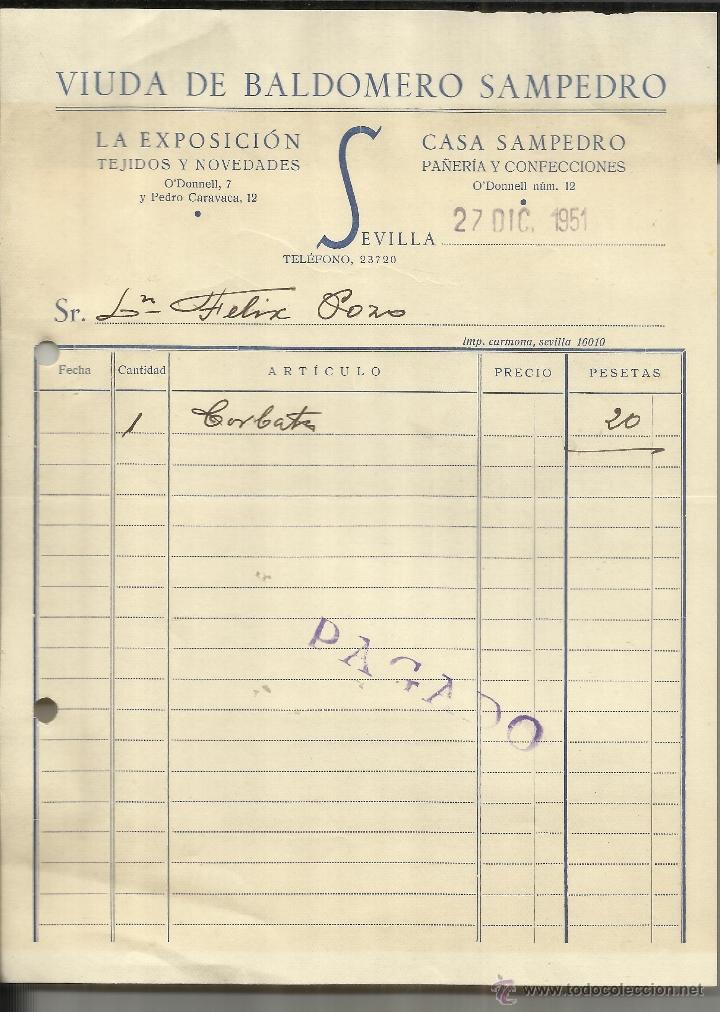 VIUDA DE BALDOMERO SAMPEDRO
LA EXPOSICIÓN
TEJIDOS Y NOVEDADES
O'Donnell, 7
y Pedro Caravaca, 12
CASA SAMPEDRO
PAÑERÍA Y CONFECCIONES
O'Donnell núm. 12
SEVILLA 27 DIC. 1951
TELÉFONO, 23720
Sr. Dn Felix Pozo
Imp. carmona, sevilla 16010
Fecha Cantidad ARTÍCULO PRECIO PESETAS
1 Corbata 20
PAGADO
www.todocoleccion.net